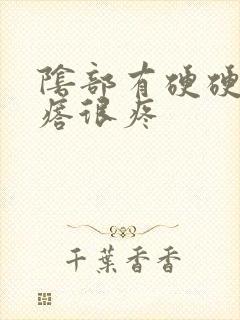 陰部有硬硬
痞很疼
千葉香香